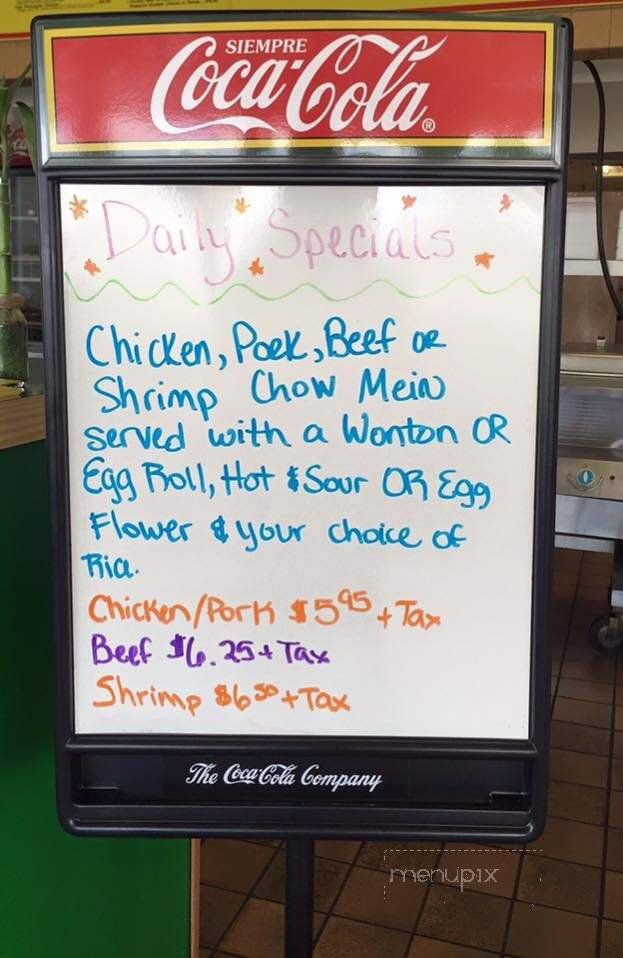 SIEMPRE
Coca-Cola®
Daily Specials
Chicken, Pork, Beef or
Shrimp Chow Mein
served with a Wonton OR
Egg Roll, Hot & Sour OR Egg
Flower & your choice of
Rice.
Chicken/Pork $5.95 + Tax
Beef $6.25 + Tax
Shrimp $6.50 + Tax
The Coca-Cola Company
menupix